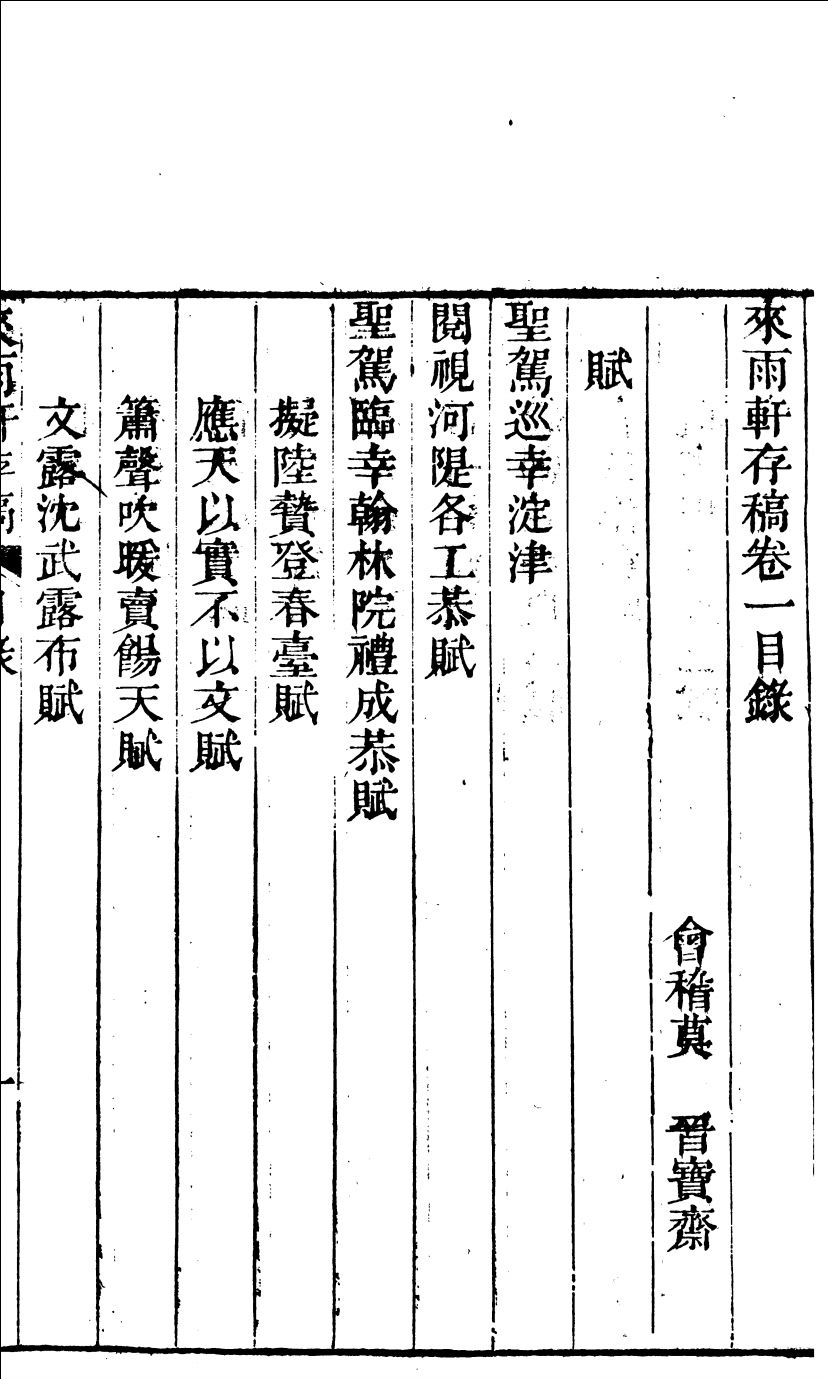 來雨軒存稿卷一目錄
會稽莫　晉寶齋
賦
聖駕巡幸淀津
閱視河隄各工恭賦
聖駕臨幸翰林院禮成恭賦
擬陸贄登春臺賦
應天以實不以文賦
簫聲吹暖賣餳天賦
文露沈武露布賦
來雨軒存稿　目錄　一